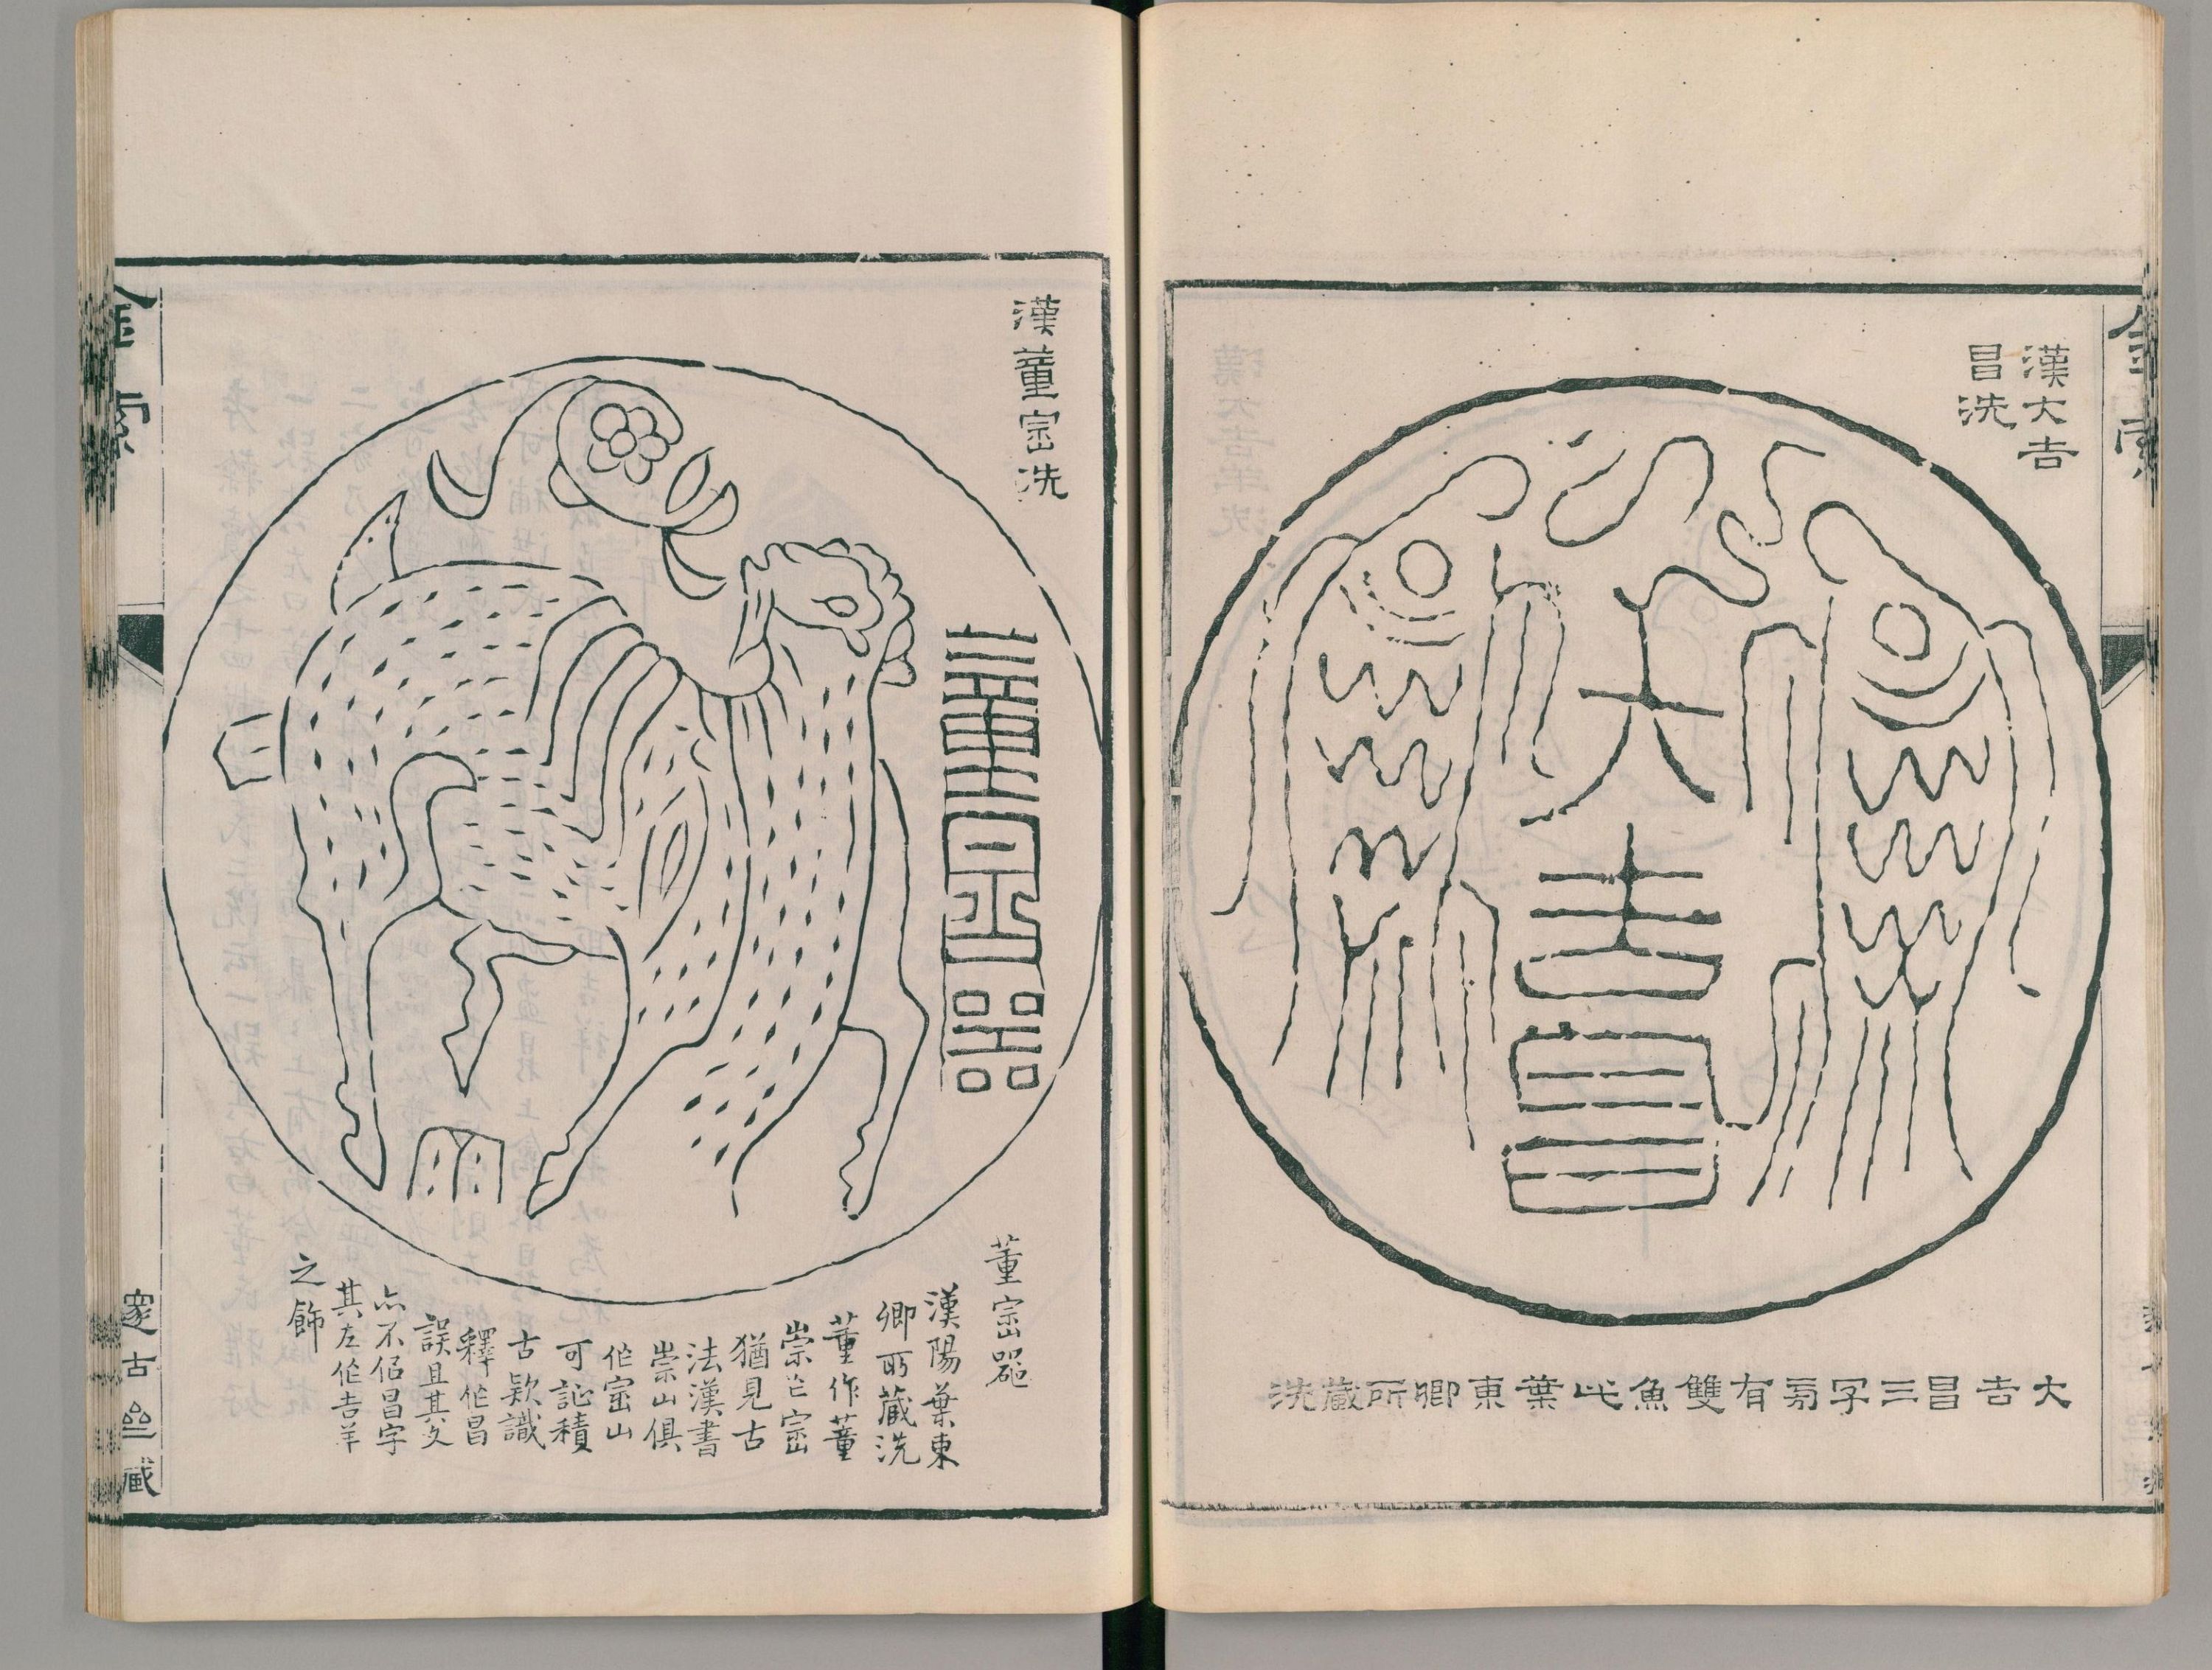 漢大吉
昌洗
大吉昌
大吉昌三字㫄有雙魚此葉東卿所藏洗
金索
漢董崈洗
董崈器
董崈器
漢陽葉東
卿所藏洗
董作董
崇作崈
猶見古
法漢書
崇山俱
作崈山
可証積
古款識
釋作昌
誤且其文
亦不佀昌字
其左作吉羊
之飾
邃古亝藏